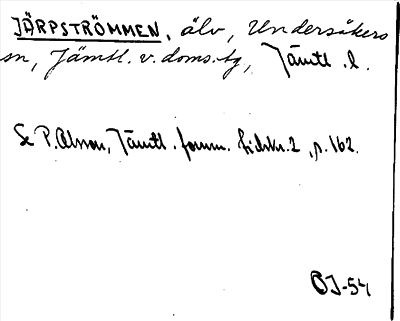 JÄRPSTRÖMMEN, älv, Undersåkers
sn, Jämtl. v. doms.-tg, Jämtl. l.
Se P. Olsson, Jämtl. fornm. tidskr. 2, s. 162.
OJ-54